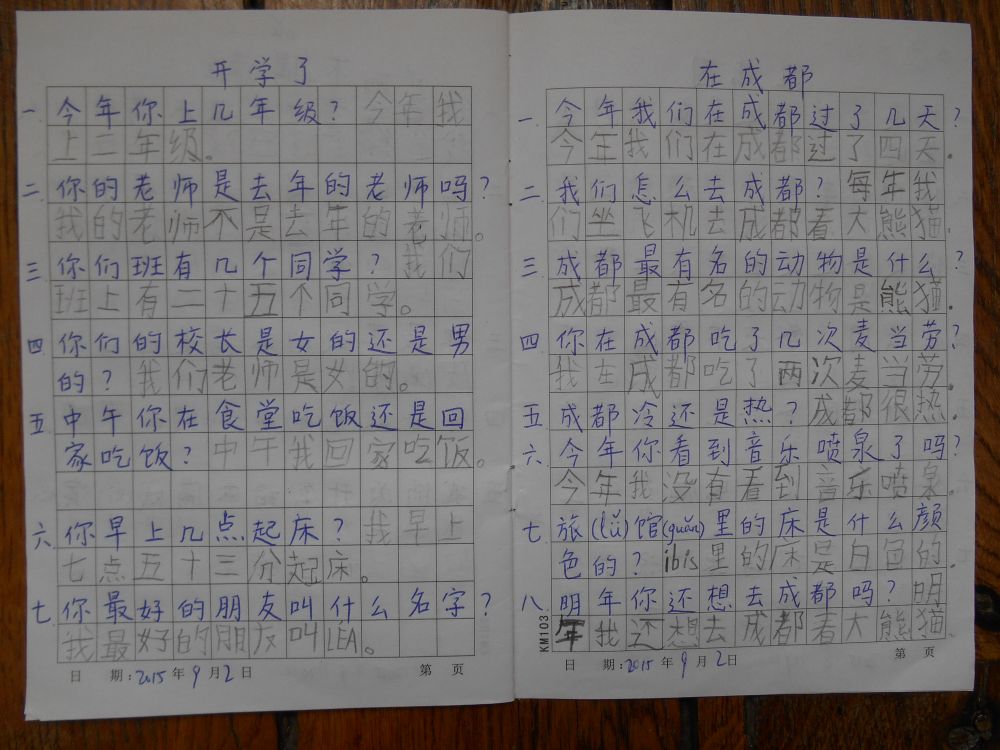 开学了
一.今年你上几年级?今年我
上二年级。
二.你的老师是去年的老师吗?
我的老师不是去年的老师。
三.你们班有几个同学?我们
班上有二十五个同学。
四.你们的校长是女的还是男
的?我们老师是女的。
五.中午你在食堂吃饭还是回
家吃饭?中午我回家吃饭。
六.你早上几点起床?我早上
七点五十三分起床。
七.你最好的朋友叫什么名字?
我最好的朋友叫LEA。
日 期:2015年9月2日 第 页
在成都
一.今年我们在成都过了几天?
今年我们在成都过了四天。
二.我们怎么去成都?每年我
们坐飞机去成都看大熊猫.
三.成都最有名的动物是什么?
成都最有名的动物是熊猫.
四.你在成都吃了几次麦当劳?
我在成都吃了两次麦当劳.
五.成都冷还是热?成都很热.
六.今年你看到音乐喷泉了吗?
今年我没有看到音乐喷泉.
七.旅(lǚ)馆(guǎn)里的床是什么颜
色的?ibis里的床是白色的.
八.明年你还想去成都吗?明
年我还想去成都看大熊猫.
KM103
日 期:2015年9月2日 第 页